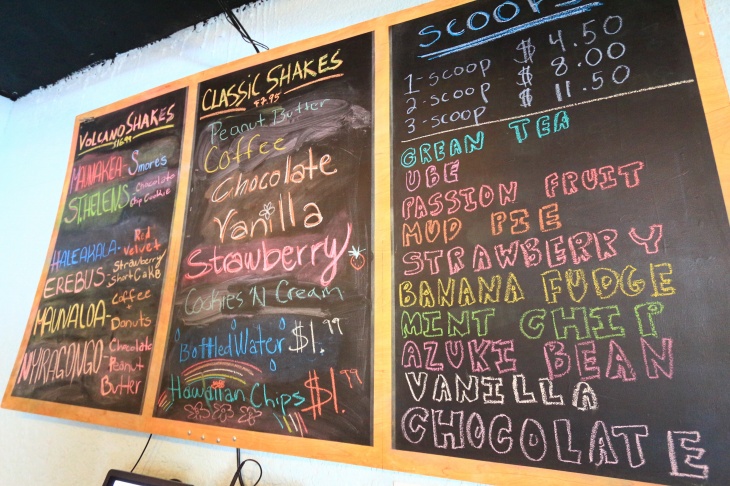 VOLCANO SHAKES
MAUNAKEA Smores
ST.HELENS Chocolate
Chip Cookie
HALEAKALA- Red
Velvet
EREBUS- Strawberry
Shortcake
MAUNALOA- Coffee
+
Donuts
NYIRAGONGO- Chocolate
Peanut
Butter
CLASSIC SHAKES
$7.95
Peanut Butter
Coffee
Chocolate
Vanilla
Strawberry
Cookies 'N Cream
Bottled Water $1.99
Hawaiian Chips $1.99
SCOOPS
1-scoop $4.50
2-scoop $8.00
3-scoop $11.50
GREAN TEA
UBE
PASSION FRUIT
MUD PIE
STRAWBERRY
BANANA FUDGE
MINT CHIP
AZUKI BEAN
VANILLA
CHOCOLATE